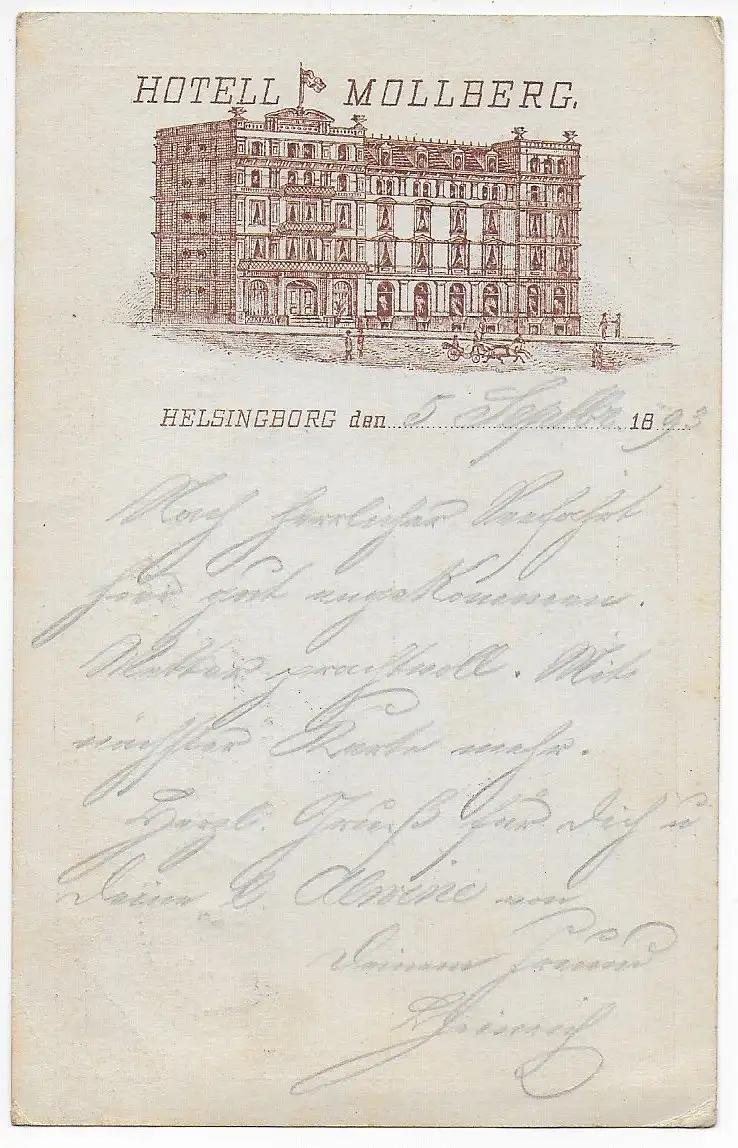 HOTELL MOLLBERG.
HELSINGBORG den 5 Septbr. 1893
Nach herrlicher Seefahrt
hier gut angekommen.
Wetter prachtvoll. Mit
nächster Karte mehr.
Herzl. Gruß für Dich u
Deine l. Alwine von
Deinem Freund
Heinrich